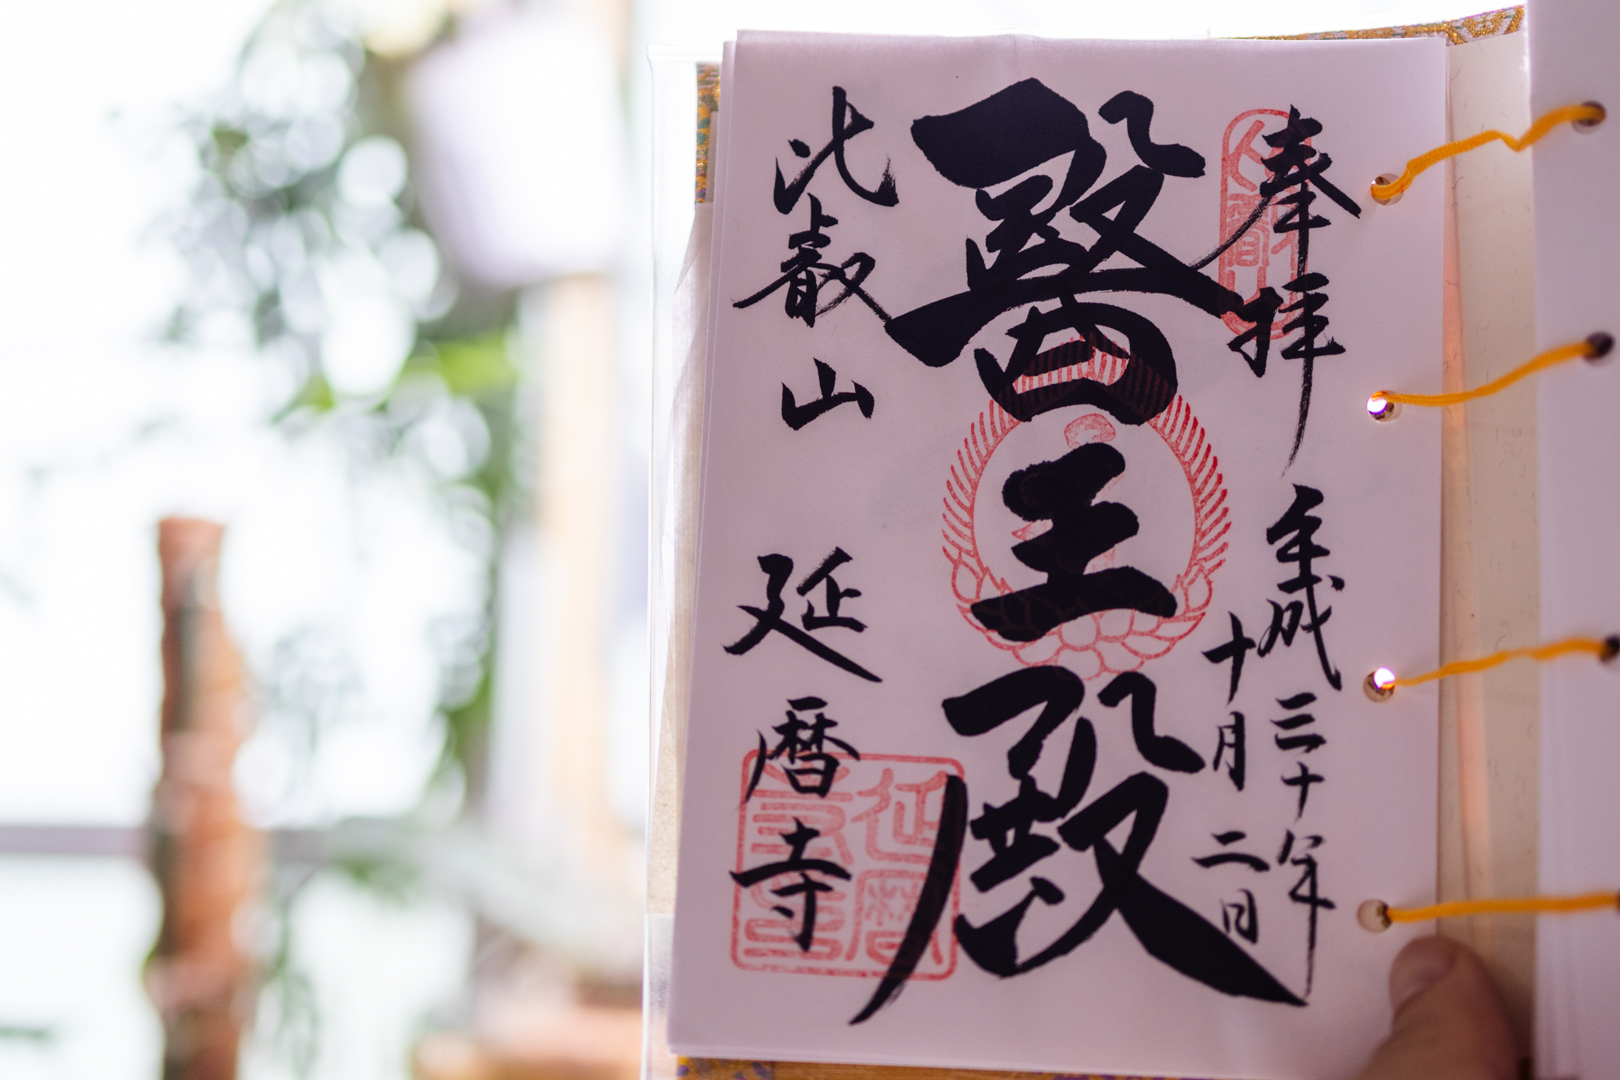 奉拝
平成三十年
十月二日
醫王殿
比叡山
延暦寺